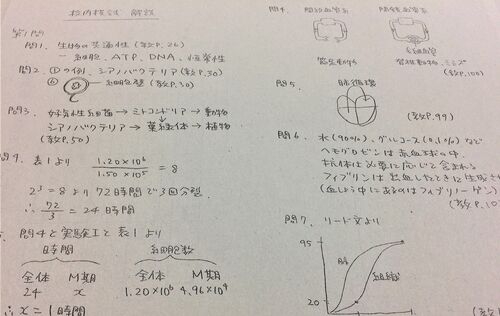 校内模試 解説
第1問
問1. 生物の共通性(教P.26)
— 細胞、ATP、DNA、恒常性
問2. ①の例、シアノバクテリア(教P.30)
⑥ — 細胞壁(教P.30)
問3. 好気性細菌→ミトコンドリア→動物
シアノバクテリア→葉緑体→植物
(教P.50)
表1より 1.20×10⁶ / 1.50×10⁵ = 8
2³=8より72時間で3回分裂
∴ 72/3 = 24時間
問4と実験Iと表1より
時間 細胞数
全体 M期 全体 M期
24 x 1.20×10⁶ 4.96×10⁴
∴ x = 1時間
問4. 開放血管系 閉鎖血管系
毛細血管
節足動物 脊椎動物、ミミズ
(教P.100)
問5. 肺循環
(教P.99)
問6. 水(90%)、グルコース(0.1%)など
ヘモグロビンは赤血球の中
抗体は必要に応じて含まれる
フィブリンは出血したときに生成さ
(血しょう中にあるのはフィブリノーゲン)
(教P.10
問7. リード文より
95
肺
組織
20